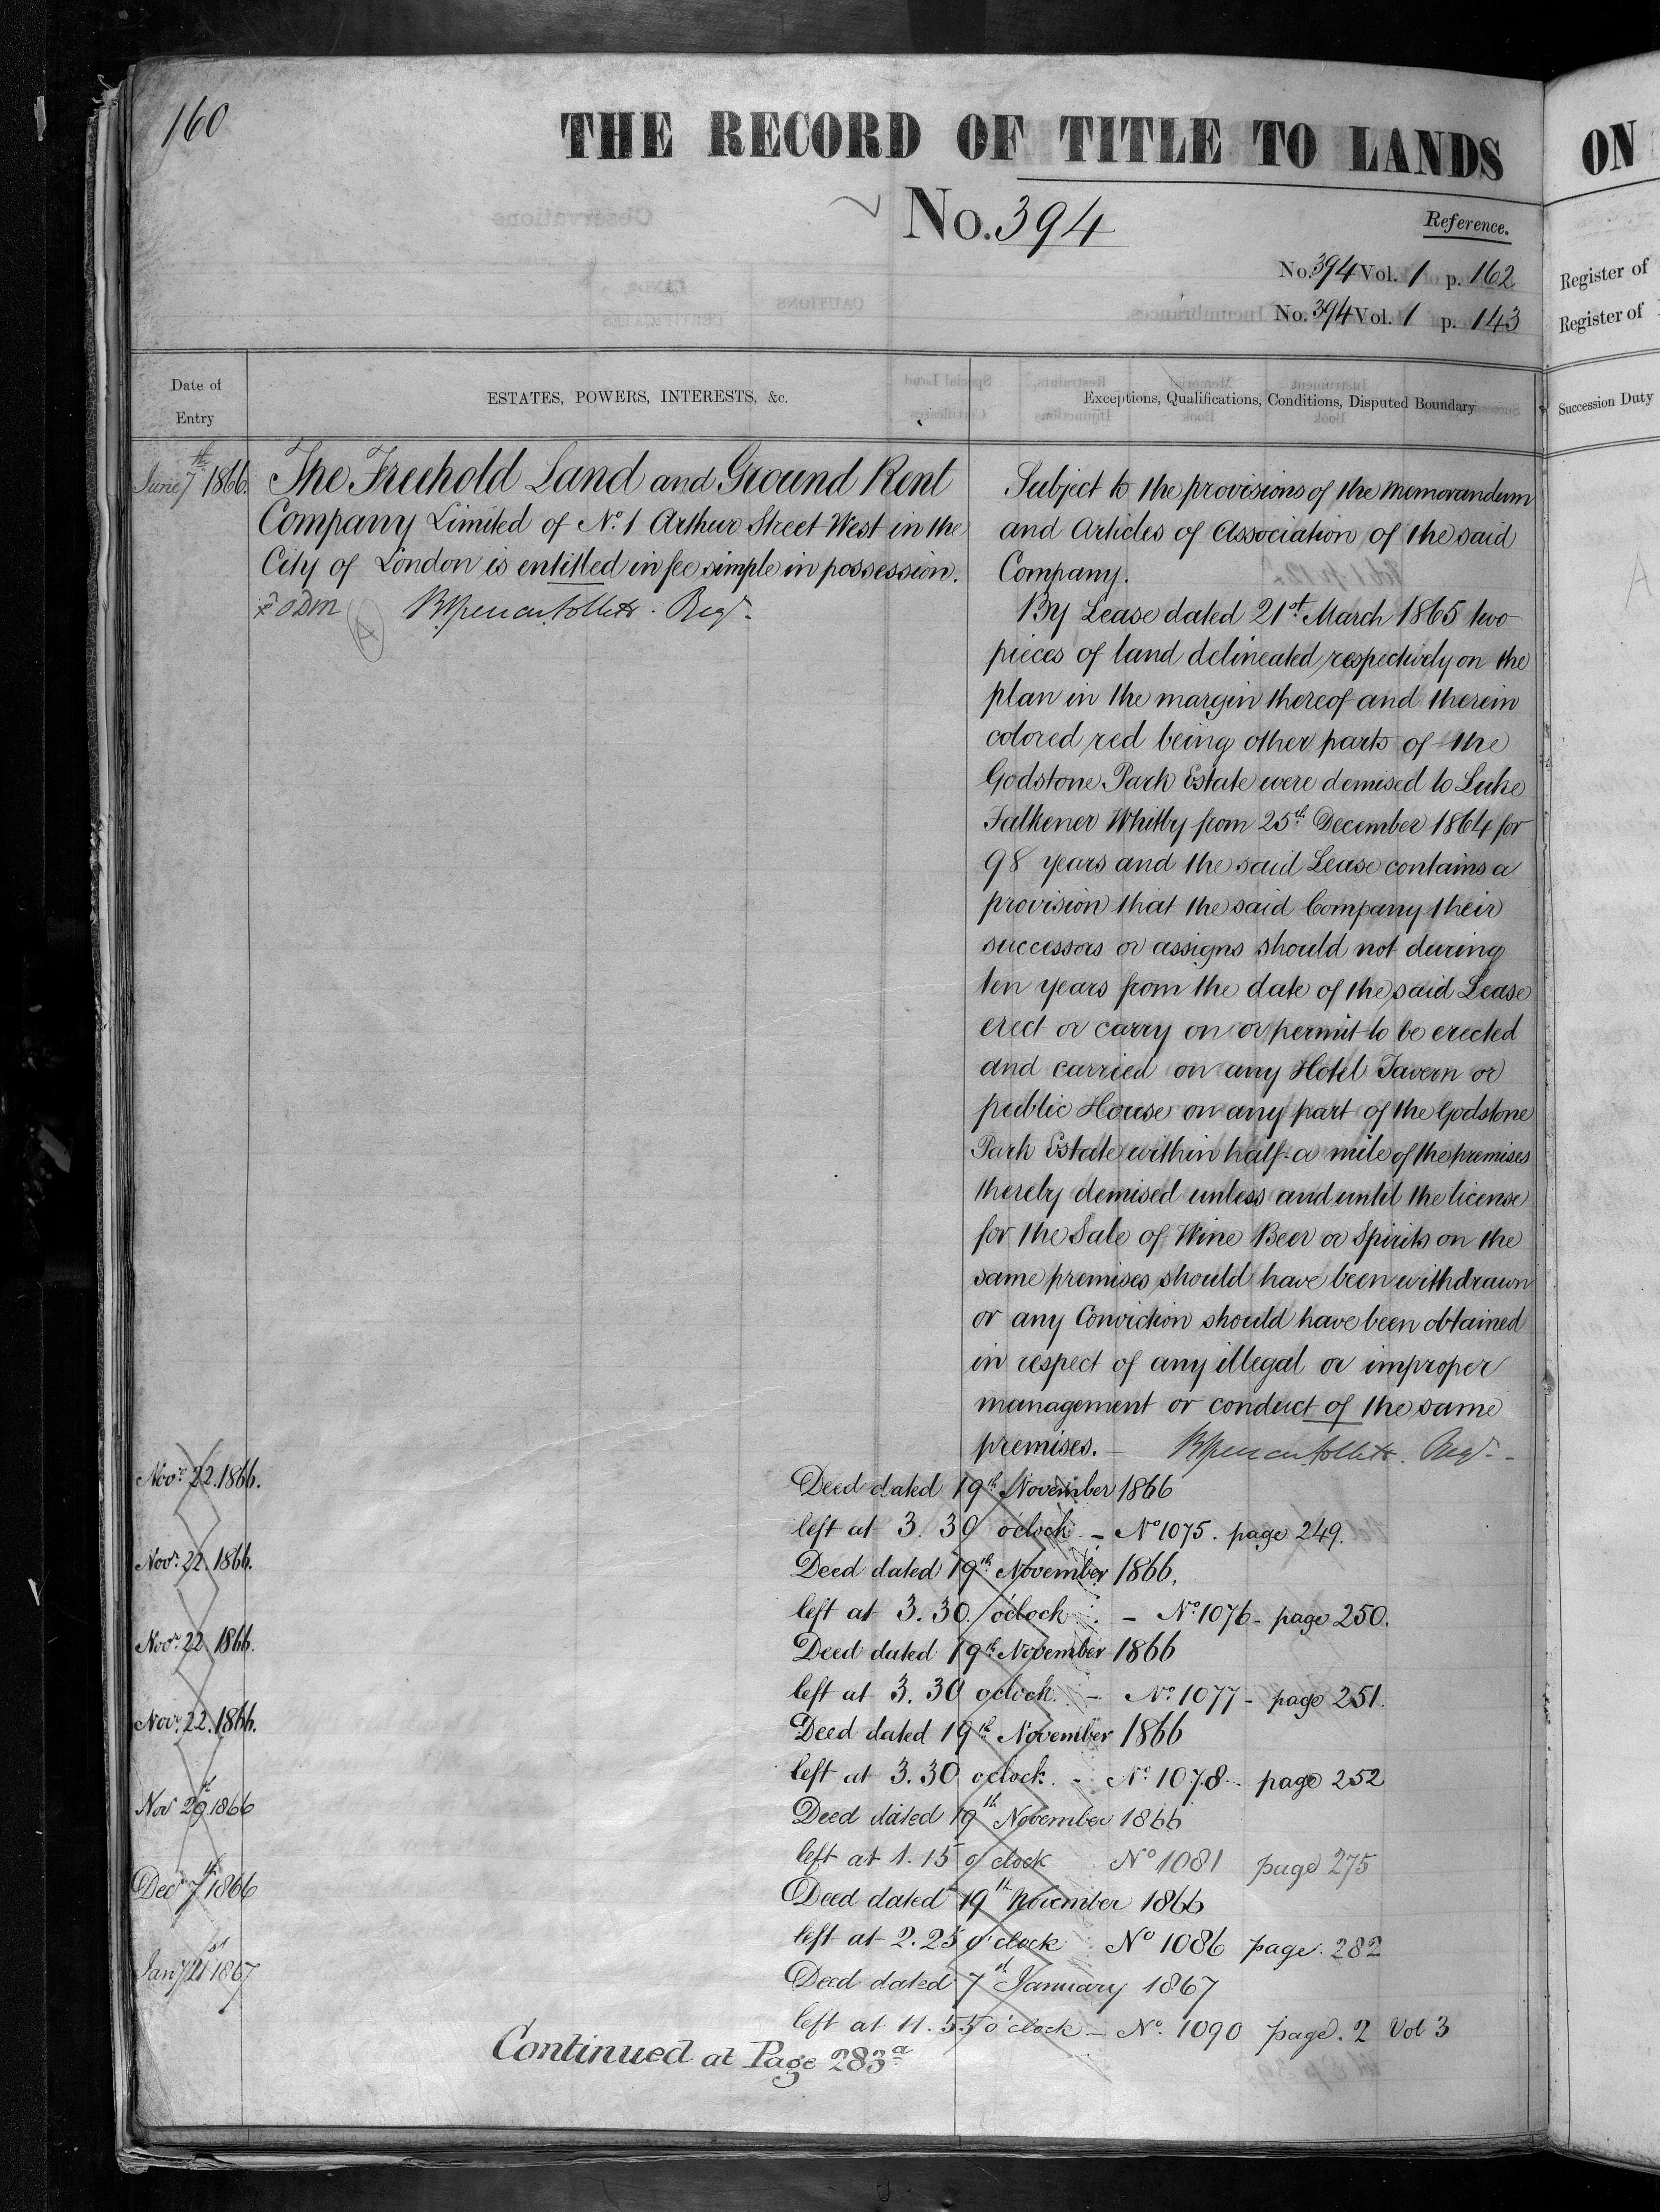 160
THE RECORD OF TITLE TO LANDS
ON
No. 394
Reference.
No. 394 Vol. 1 p. 162
No. 394 Vol. 1 p. 143
Register of
Register of
Date of Entry
ESTATES, POWERS, INTERESTS, &c.
Exceptions, Qualifications, Conditions, Disputed Boundary
Succession Duty
June 7th 1866.
The Freehold Land and Ground Rent
Company Limited of No. 1 Arthur Street West in the
City of London is entitled in fee simple in possession.
Regr.
Subject to the provisions of the memorandum
and Articles of Association of the said
Company.
By Lease dated 21st March 1865 two
pieces of land delineated respectively on the
plan in the margin thereof and therein
colored red being other parts of the
Godstone Park Estate were demised to Luke
Falkener Whitby from 25th December 1864 for
98 years and the said Lease contains a
provision that the said Company their
successors or assigns should not during
ten years from the date of the said Lease
erect or carry on or permit to be erected
and carried on any Hotel Tavern or
public House on any part of the Godstone
Park Estate within half a mile of the premises
thereby demised unless and until the license
for the Sale of Wine Beer or Spirits on the
same premises should have been withdrawn
or any Conviction should have been obtained
in respect of any illegal or improper
management or conduct of the same
premises. — Regr.
Novr. 22. 1866.
Deed dated 19th November 1866
left at 3.30 oclock – No 1075. page 249.
Novr. 22. 1866.
Deed dated 19th November 1866.
left at 3.30. o'clock – No. 1076 – page 250.
Novr. 22 1866.
Deed dated 19th November 1866
left at 3.30 oclock. – No. 1077 – page 251.
Novr. 22. 1866.
Deed dated 19th November 1866
left at 3.30 oclock. – No. 1078 – page 252
Nov 29th 1866
Deed dated 19th November 1866
left at 1.15 o'clock No 1081 page 275
Decr 7th 1866
Deed dated 19th November 1866
left at 2.25 o'clock No 1086 page. 282
Jany 21st 1867
Deed dated 7th January 1867
left at 11.55 o'clock – No. 1090 page. 2 Vol 3
Continued at Page 283a